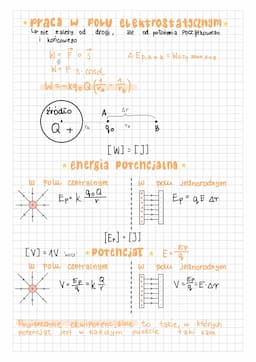 • praca w polu elektrostatycznym •
↳ nie zależy od drogi, ale od położenia początkowego
i końcowego
W = F ∘ s
W = F s · cosα
W = -k q₀ Q
źródło
Q +
r₀ A Δr
q₀ B
[W] = [J]
• energia potencjalna •
w polu centralnym w polu jednorodnym
Ep = k q₀Q/r Ep = qEΔr
[Ep] = [J]
[V] = 1V • potencjał • E = Ep/q
w polu centralnym w polu jednorodnym
V = Ep/q = k Q/r V = Ep/q = E·Δr
Powierzchnie ekwipotencjalne to takie, w których
potencjał jest w każdym punkcie taki sam